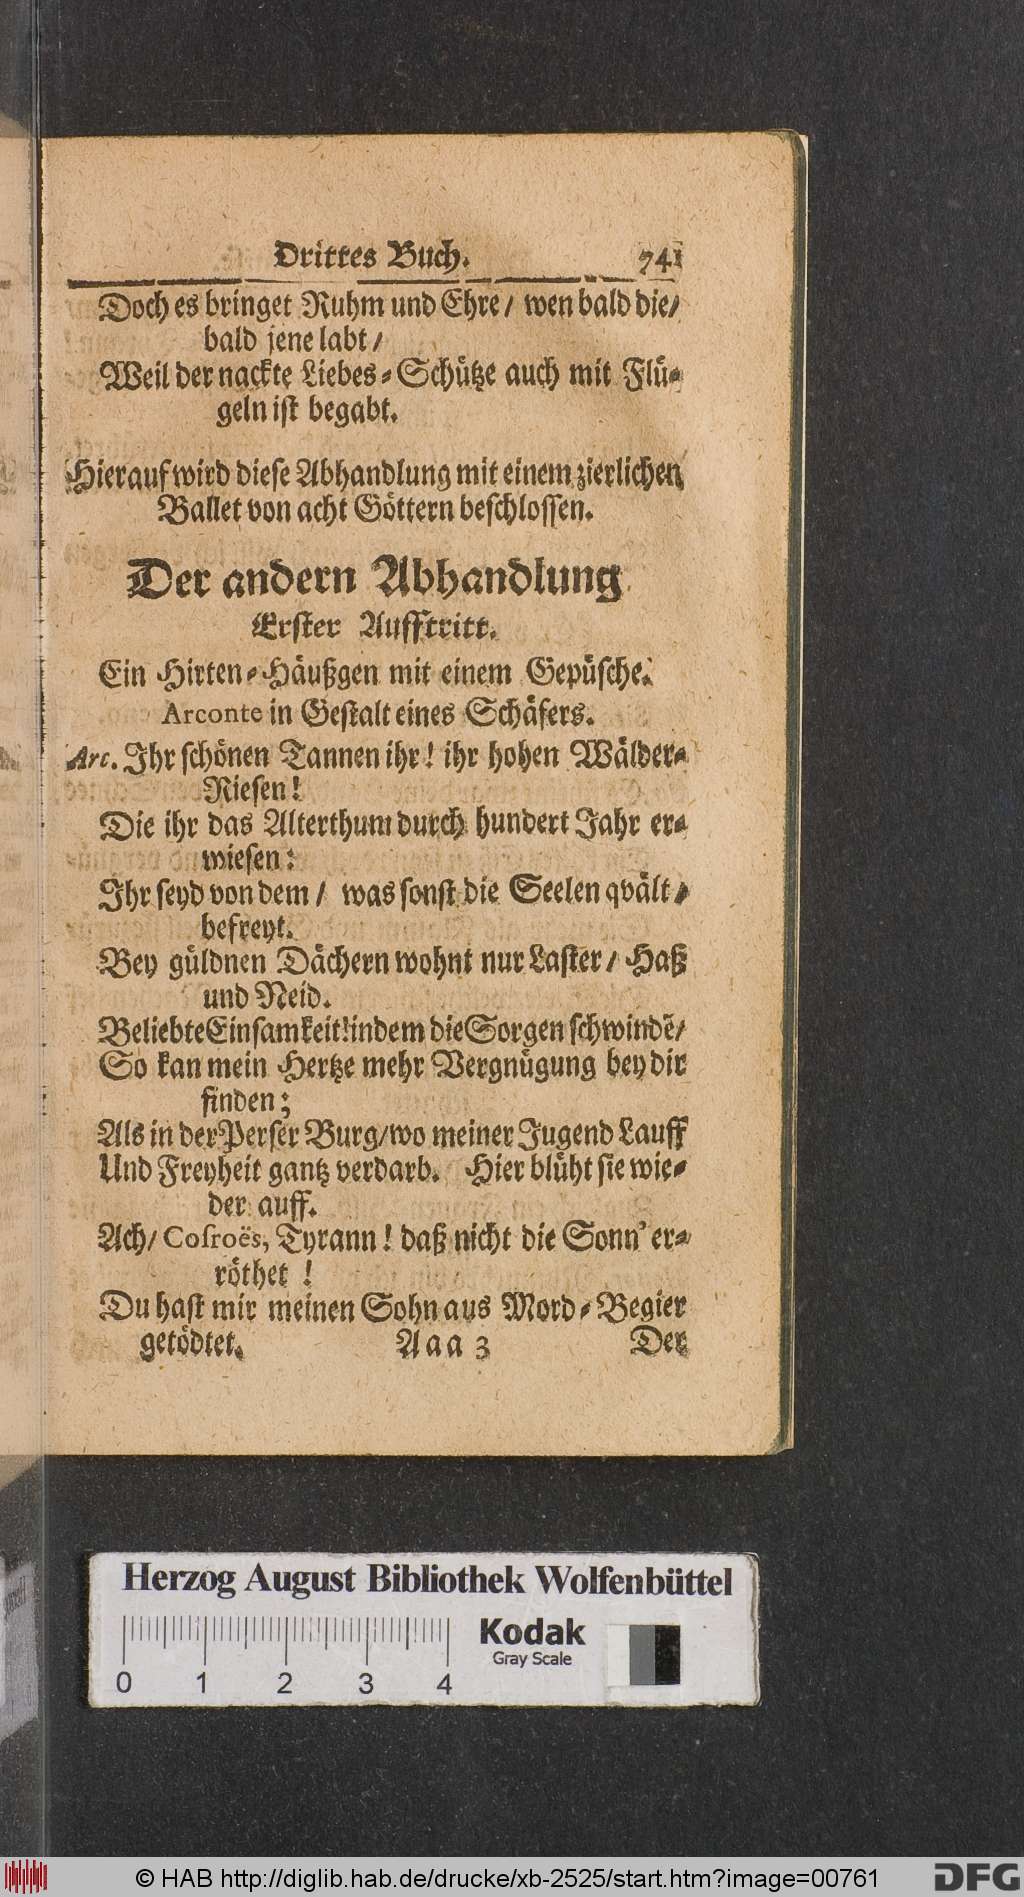 Drittes Buch. 741
Doch es bringet Ruhm und Ehre / wen bald die /
bald jene labt /
Weil der nackte Liebes-Schütze auch mit Flü-
geln ist begabt.
Hierauf wird diese Abhandlung mit einem zierlichen
Ballet von acht Göttern beschlossen.
Der andern Abhandlung
Erster Aufftritt.
Ein Hirten-Häußgen mit einem Gepüsche.
Arconte in Gestalt eines Schäfers.
Arc. Ihr schönen Tannen ihr! ihr hohen Wälder-
Riesen!
Die ihr das Alterthum durch hundert Jahr er-
wiesen:
Ihr seyd von dem / was sonst die Seelen qvält /
befreyt.
Bey güldnen Dächern wohnt nur Laster / Haß
und Neid.
Beliebte Einsamkeit! indem die Sorgen schwindẽ /
So kan mein Hertze mehr Vergnügung bey dir
finden;
Als in der Perser Burg / wo meiner Jugend Lauff
Und Freyheit gantz verdarb. Hier blüht sie wie-
der auff.
Ach / Cosroës, Tyrann! daß nicht die Sonn' er-
röthet!
Du hast mir meinen Sohn aus Mord-Begier
getödtet. Aaa 3 Der
Herzog August Bibliothek Wolfenbüttel
Kodak
Gray Scale
0 1 2 3 4
© HAB http://diglib.hab.de/drucke/xb-2525/start.htm?image=00761
DFG